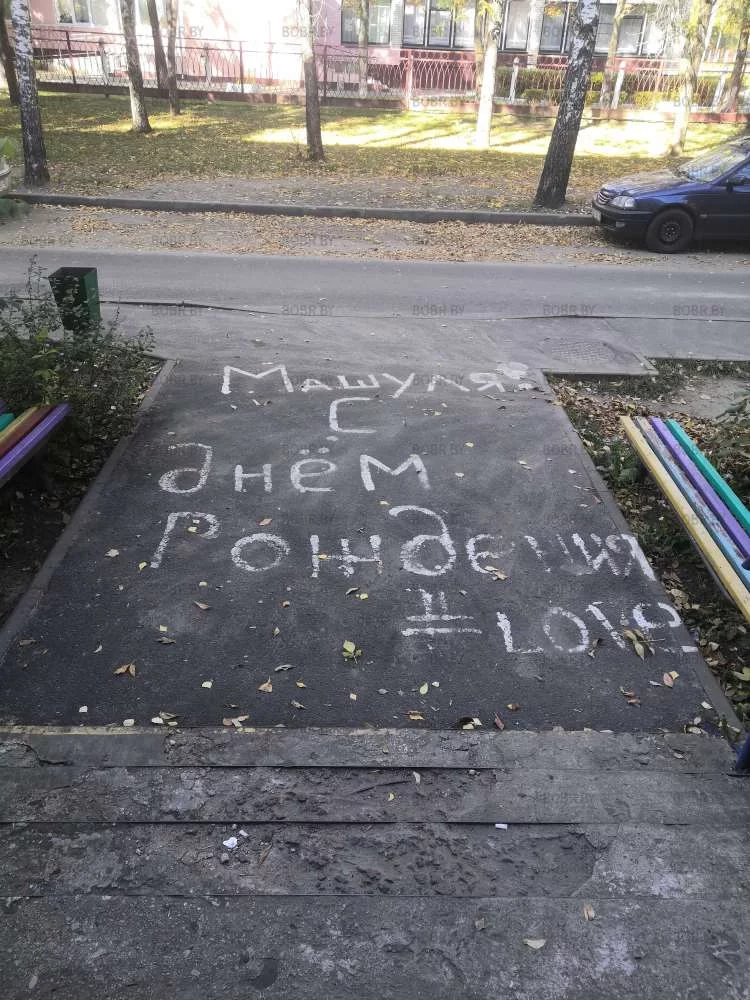 Машуля
С
днём
рождения
#Love
BOBR.BY